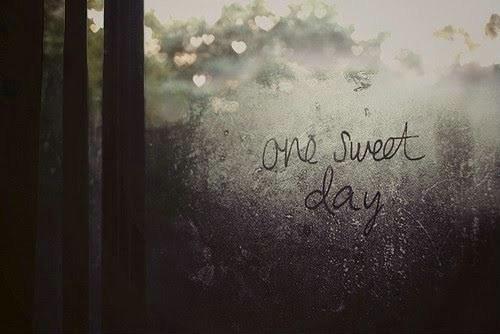 one sweet
day